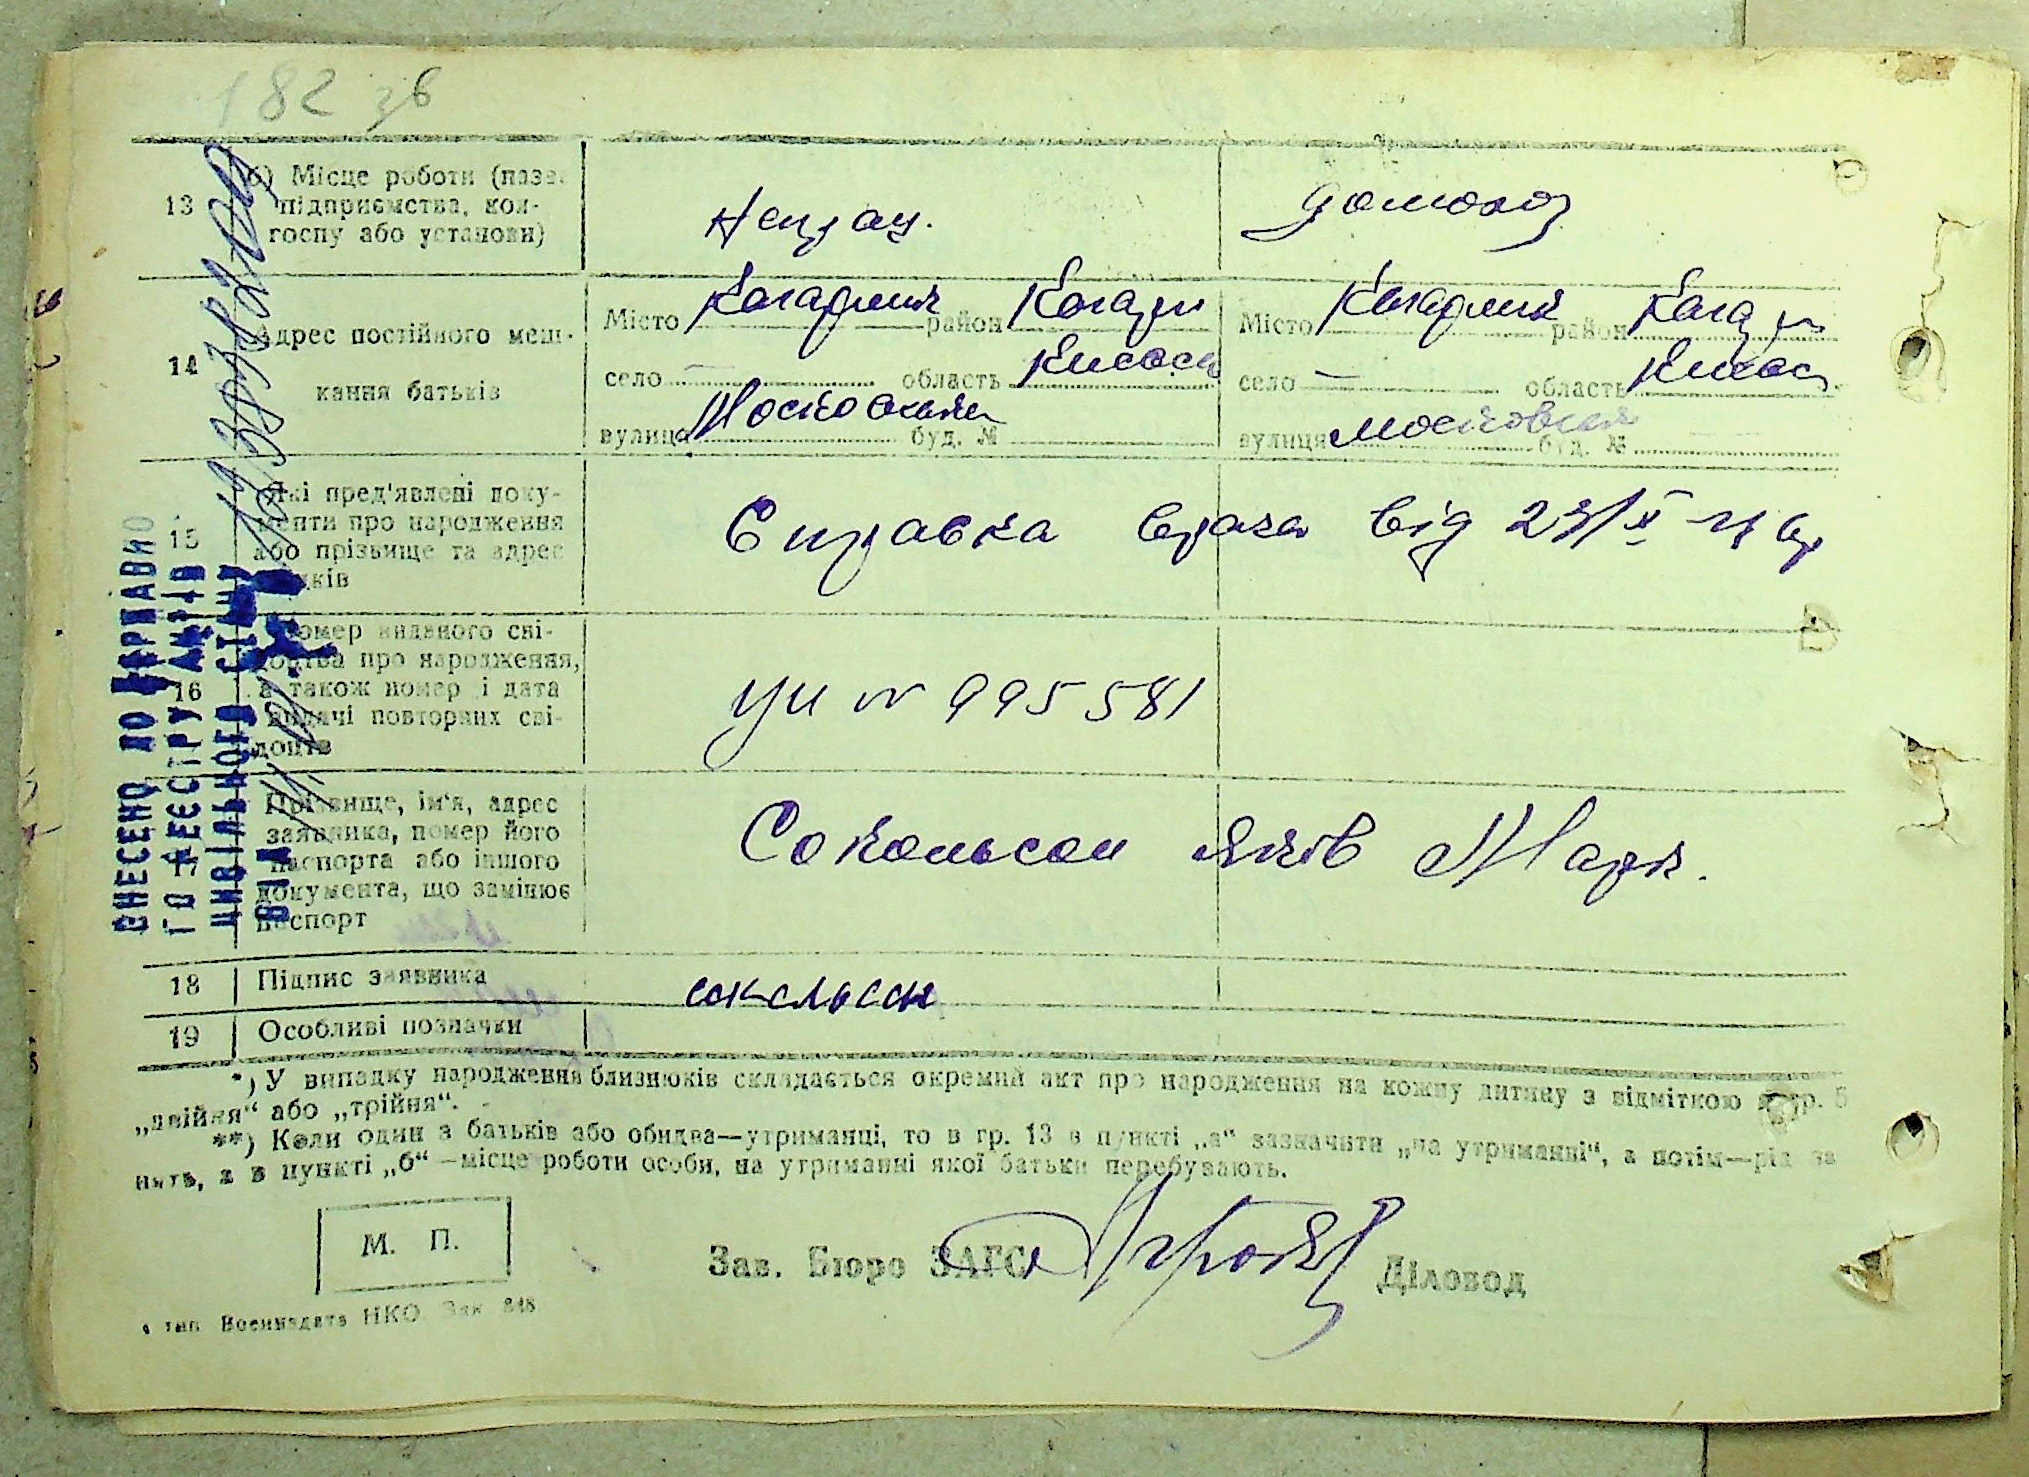 182 зв
13
б) Місце роботи (назва
підприємства, кол-
госпу або установи)
Непрац.
домохоз
14
Адрес постійного меш-
кання батьків
Місто Кагарлик район Кагарл
село — область Київськ
вулиця Московська буд. №
Місто Кагарлик район Кагарл
село — область Київськ
вулиця московська буд. №
15
Які пред'явлені доку-
менти про народження
або прізвище та адрес
Справка врача від 23/X
16
Номер виданого сві-
доцтва про народження,
а також номер і дата
видачі повторних сві-
доцтв
УИ № 995581
17
Прізвище, ім'я, адрес
заявника, номер його
паспорта або іншого
документа, що замінює
паспорт
Сокольсон Яків Марк.
18
Підпис заявника
сокольсон
19
Особливі позначки
*) У випадку народження близнюків складається окремий акт про народження на кожну дитину з відміткою в гр. 5
„двійня“ або „трійня“.
**) Коли один з батьків або обидва—утриманці, то в гр. 13 в пункті „а“ зазначити „на утриманні“, а потім—рід за
нять, а в пункті „б“—місце роботи особи, на утриманні якої батьки перебувають.
М. П.
Зав. Бюро ЗАГС
Діловод
тип. Воениздата НКО Зак. 848
ВНЕСЕНО ДО ДЕРЖАВНО
ГО РЕЄСТРУ АКТІВ
ЦИВІЛЬНОГО СТАНУ
ВІД